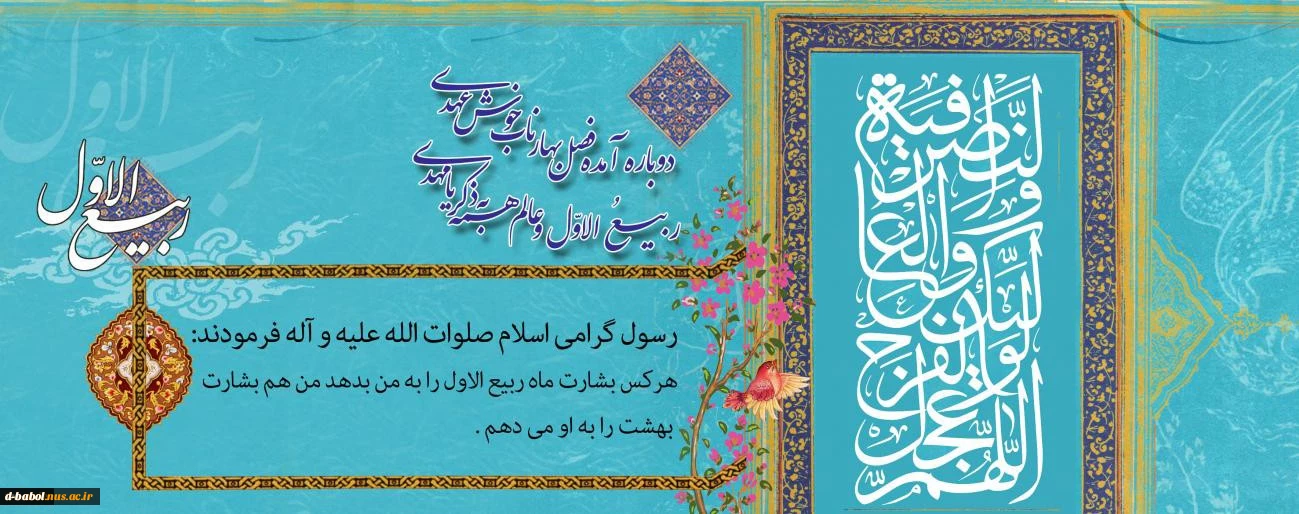 دوباره آمده فصل بهار ناب خوش عهدی
ربیعُ الاوّل و عالم همه به ذکر یا مهدی
ربیع الاوّل
رسول گرامی اسلام صلوات الله علیه و آله فرمودند:
هرکس بشارت ماه ربیع الاول را به من بدهد من هم بشارت
بهشت را به او می دهم .
اللّهمّ عجّل لولیّک الفرج
والعافیة والنّصر
ربیع الاوّل
d-babol.nus.ac.ir